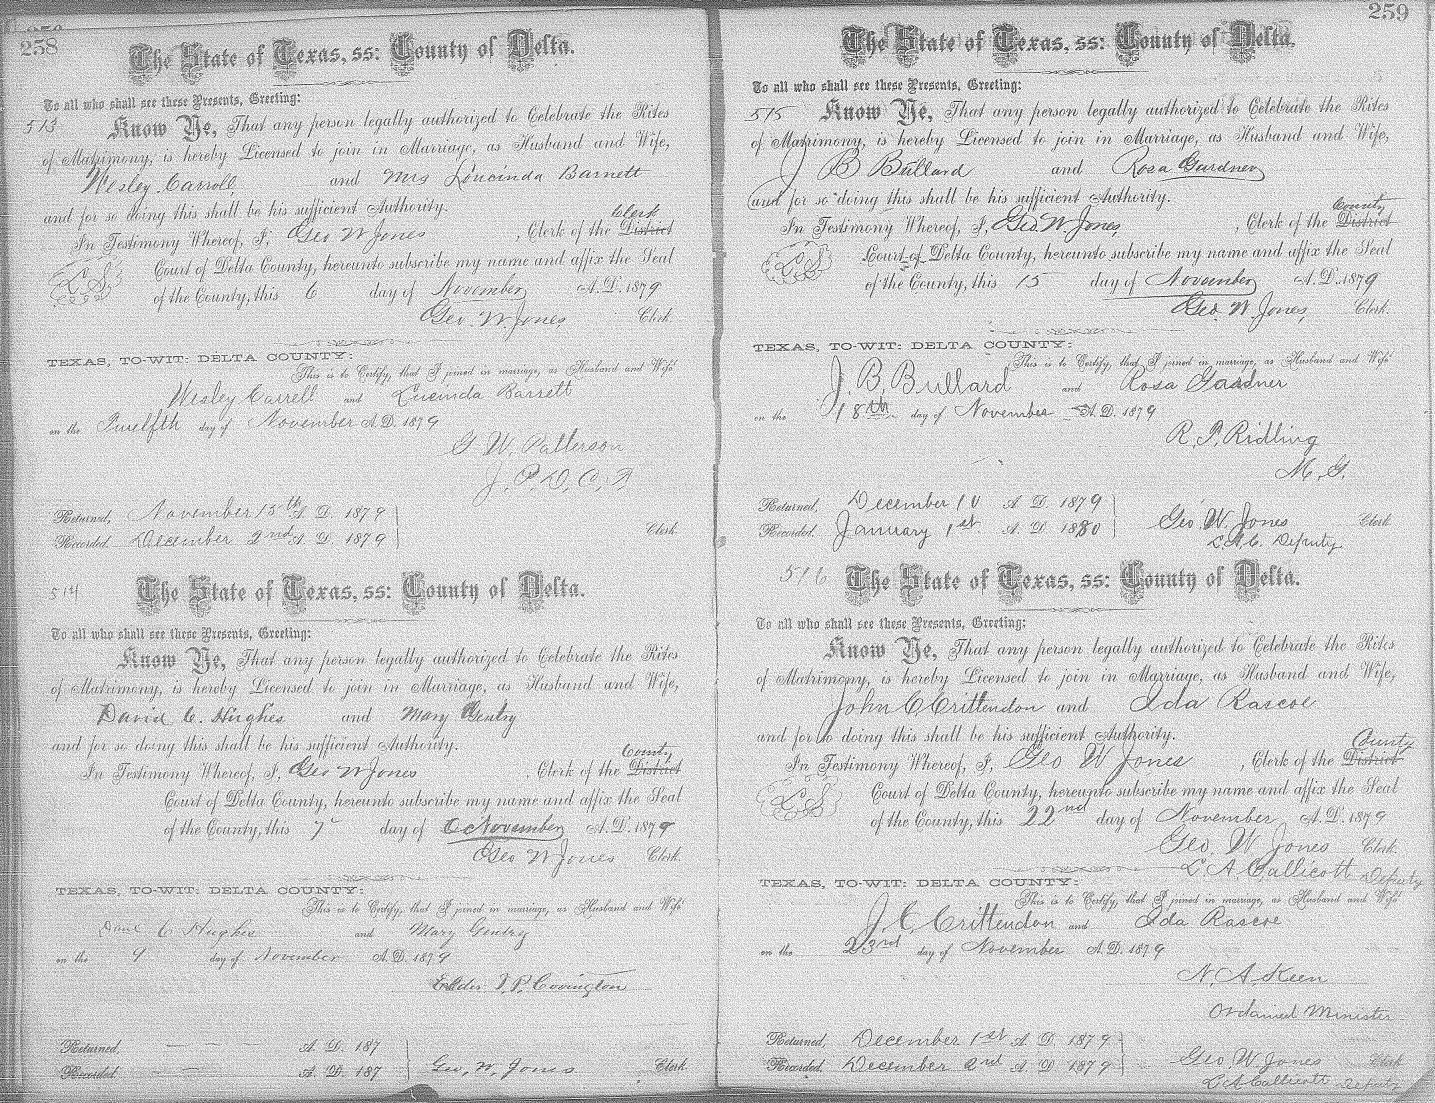 258
The State of Texas, ss: County of Delta.
To all who shall see these Presents, Greeting:
513
Know Ye, That any person legally authorized to Celebrate the Rites
of Matrimony, is hereby Licensed to join in Marriage, as Husband and Wife,
Wesley Carroll and Mrs Loucinda Barnett
and for so doing this shall be his sufficient Authority.
Clerk
In Testimony Whereof, I, Geo W Jones, Clerk of the District
L S
Court of Delta County, hereunto subscribe my name and affix the Seal
of the County, this 6 day of November A. D. 1879
Geo. W. Jones Clerk.
TEXAS, TO-WIT: DELTA COUNTY:
This is to Certify, that I joined in marriage, as Husband and Wife
Wesley Carrell and Lucinda Barrett
on the Twelfth day of November A. D. 1879
G W. Patterson
J. P. D. C. T.
Returned, November 15th A D 1879
Recorded. December 2nd A. D. 1879 Clerk
514
The State of Texas, ss: County of Delta.
To all who shall see these Presents, Greeting:
Know Ye, That any person legally authorized to Celebrate the Rites
of Matrimony, is hereby Licensed to join in Marriage, as Husband and Wife,
David C. Hughes and Mary Gentry
and for so doing this shall be his sufficient Authority.
County
In Testimony Whereof, I, Geo W Jones, Clerk of the District
Court of Delta County, hereunto subscribe my name and affix the Seal
of the County, this 7 day of November A. D. 1879
Geo W Jones Clerk.
TEXAS, TO-WIT: DELTA COUNTY:
This is to Certify, that I joined in marriage, as Husband and Wife
C Hughes and Mary Gentry
on the 9 day of November A. D. 1879
Elder J. P. Covington
Returned, A. D. 187
Recorded. A. D. 187 Geo. W. Jones Clerk
259
The State of Texas, ss: County of Delta.
To all who shall see these Presents, Greeting:
515
Know Ye, That any person legally authorized to Celebrate the Rites
of Matrimony, is hereby Licensed to join in Marriage, as Husband and Wife,
J B Bullard and Rosa Gardner
and for so doing this shall be his sufficient Authority.
County
In Testimony Whereof, I, Geo. W. Jones, Clerk of the District
L S
Court of Delta County, hereunto subscribe my name and affix the Seal
of the County, this 15 day of November A. D. 1879
Geo. W. Jones, Clerk.
TEXAS, TO-WIT: DELTA COUNTY:
This is to Certify, that I joined in marriage, as Husband and Wife
J. B. Bullard and Rosa Gardner
on the 18th day of November A. D. 1879
R. P. Ridling
M. G.
Returned, December 10 A. D. 1879
Recorded. January 1st A. D 1880 Geo. W. Jones Clerk
L. A. C. Deputy
516
The State of Texas, ss: County of Delta.
To all who shall see these Presents, Greeting:
Know Ye, That any person legally authorized to Celebrate the Rites
of Matrimony, is hereby Licensed to join in Marriage, as Husband and Wife,
John C Crittendon and Ida Rascoe
and for so doing this shall be his sufficient Authority.
County
In Testimony Whereof, I, Geo W Jones, Clerk of the District
L S
Court of Delta County, hereunto subscribe my name and affix the Seal
of the County, this 22nd day of November A. D. 1879
Geo. W Jones Clerk.
L A Callicott Deputy
TEXAS, TO-WIT: DELTA COUNTY:
This is to Certify, that I joined in marriage, as Husband and Wife
J. C Crittendon and Ida Rascoe
on the 23rd day of November A. D. 1879
N. A. Keen
Ordained Minister
Returned, December 1st A. D. 1879
Recorded. December 2nd A. D 1879 Geo. W Jones Clerk
L A Callicott Deputy